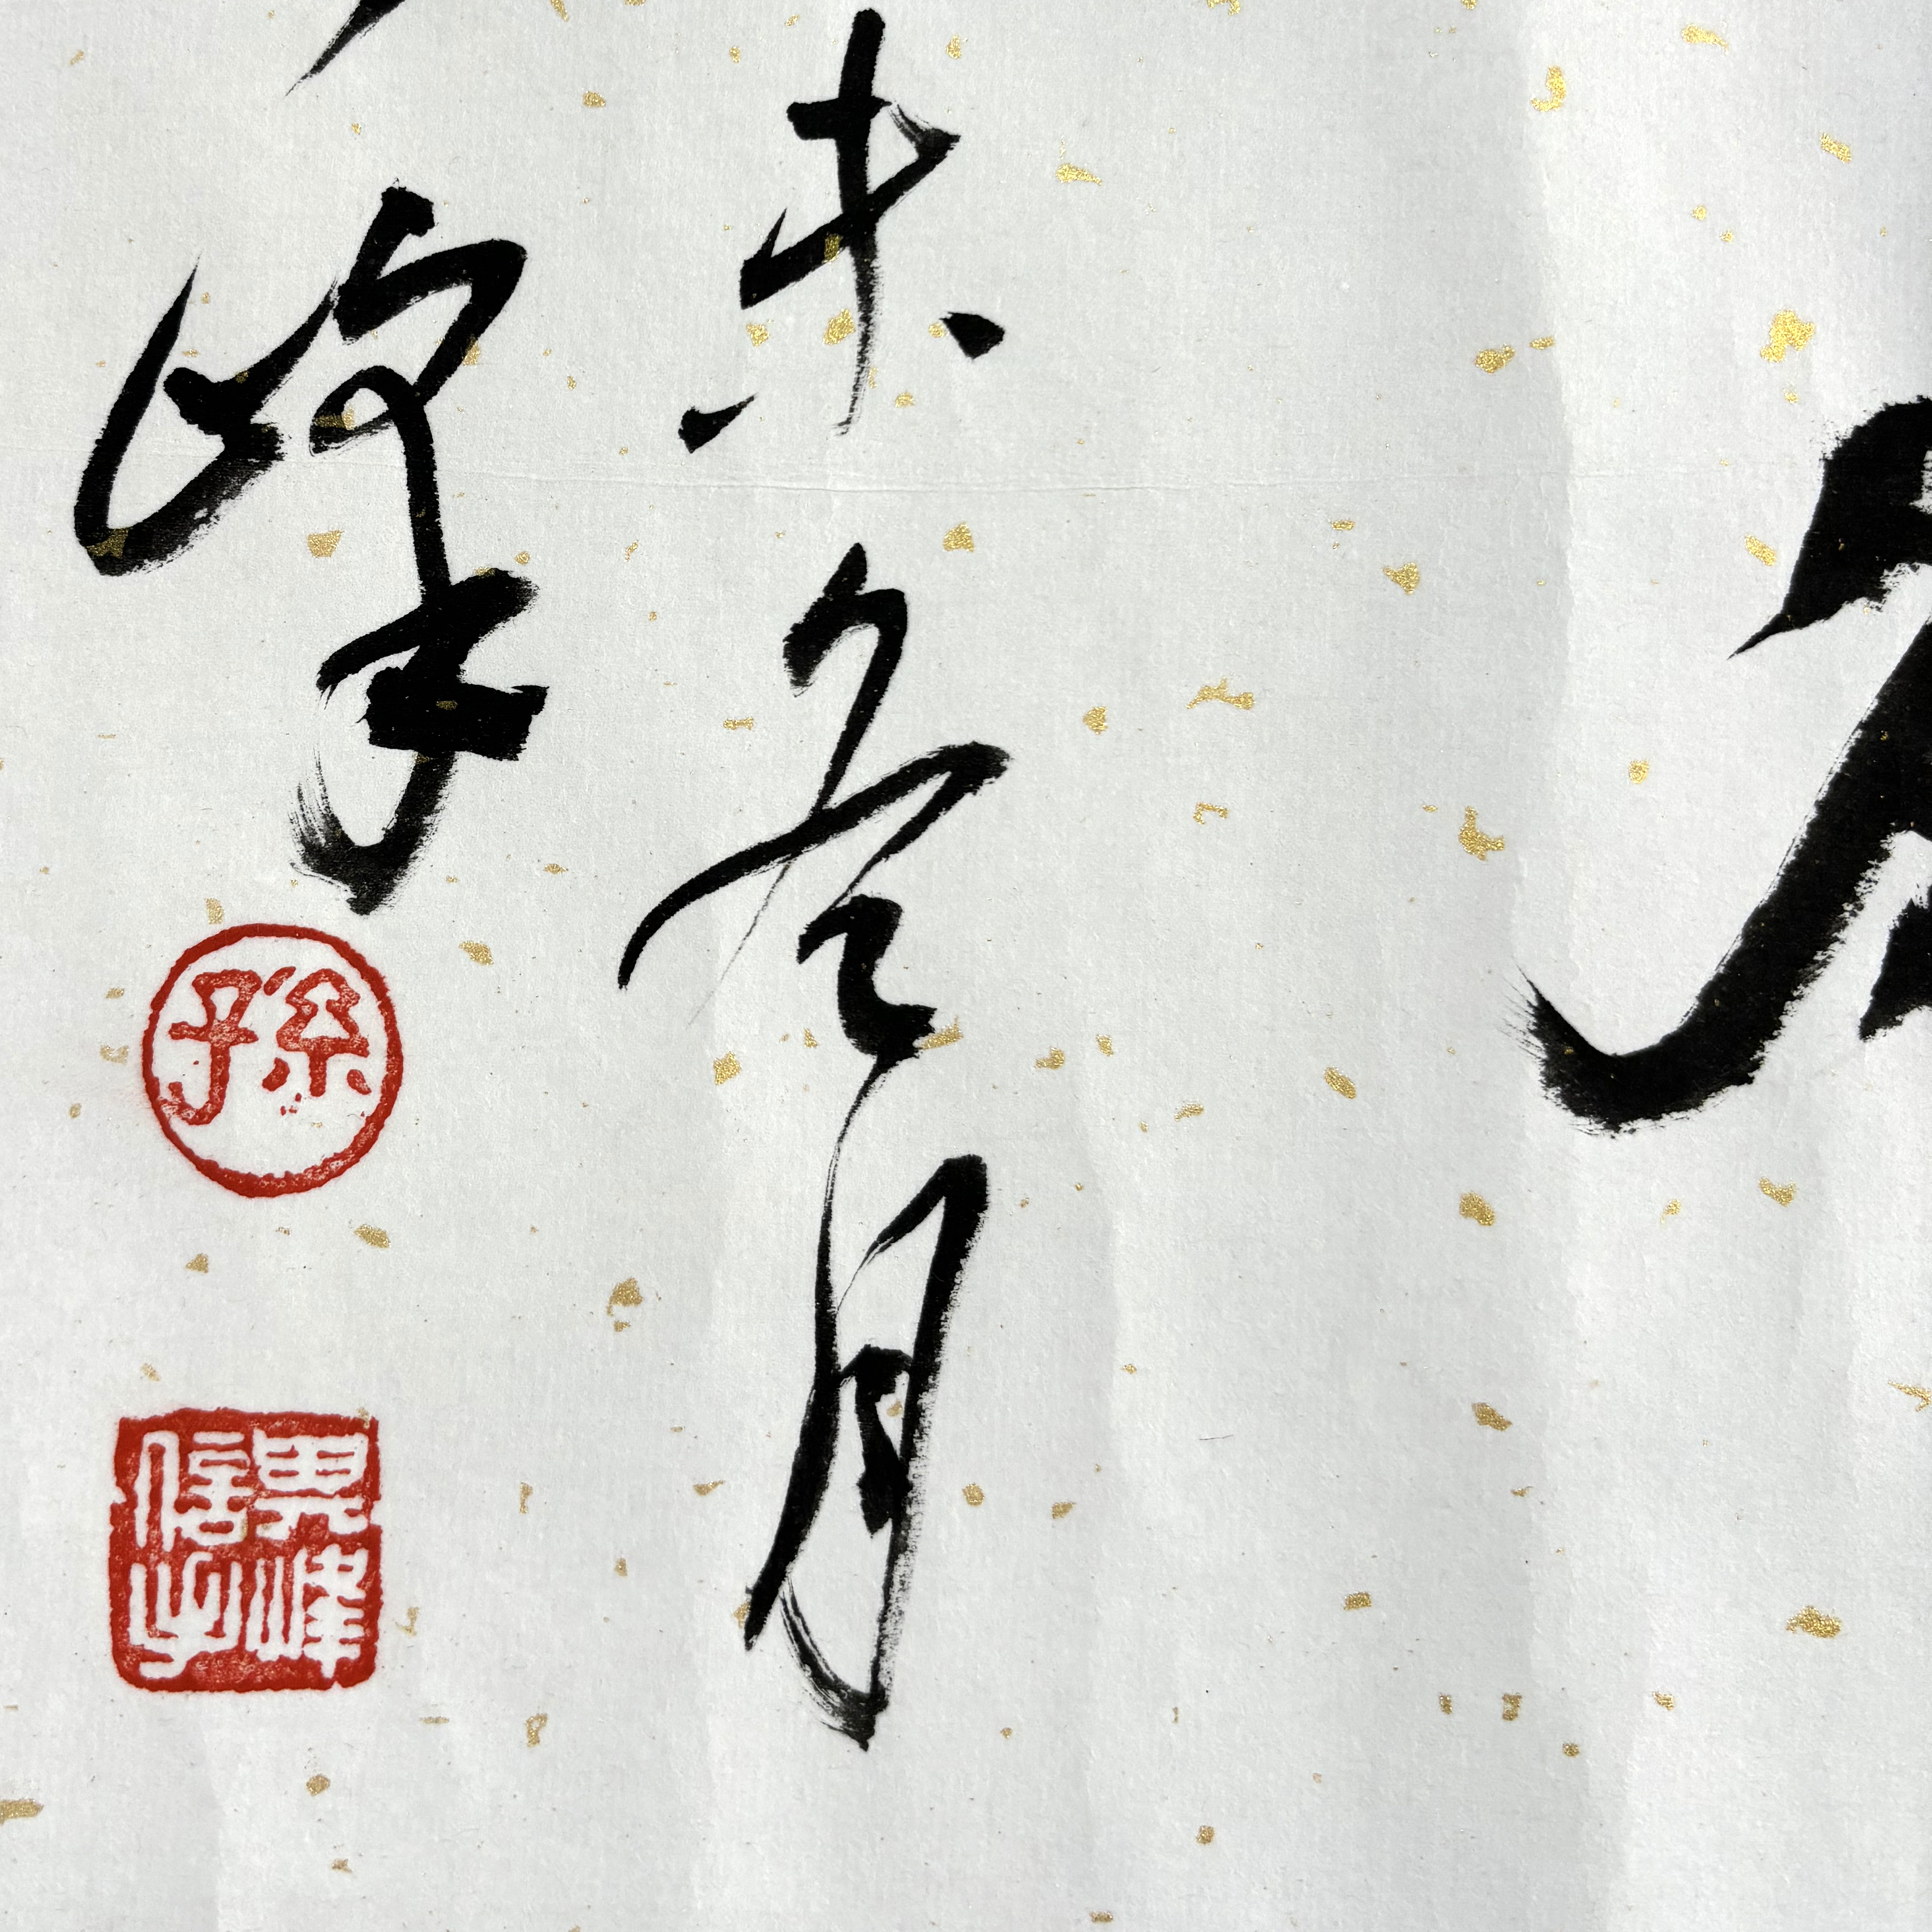 未冬月
峰
孫
異峰
信